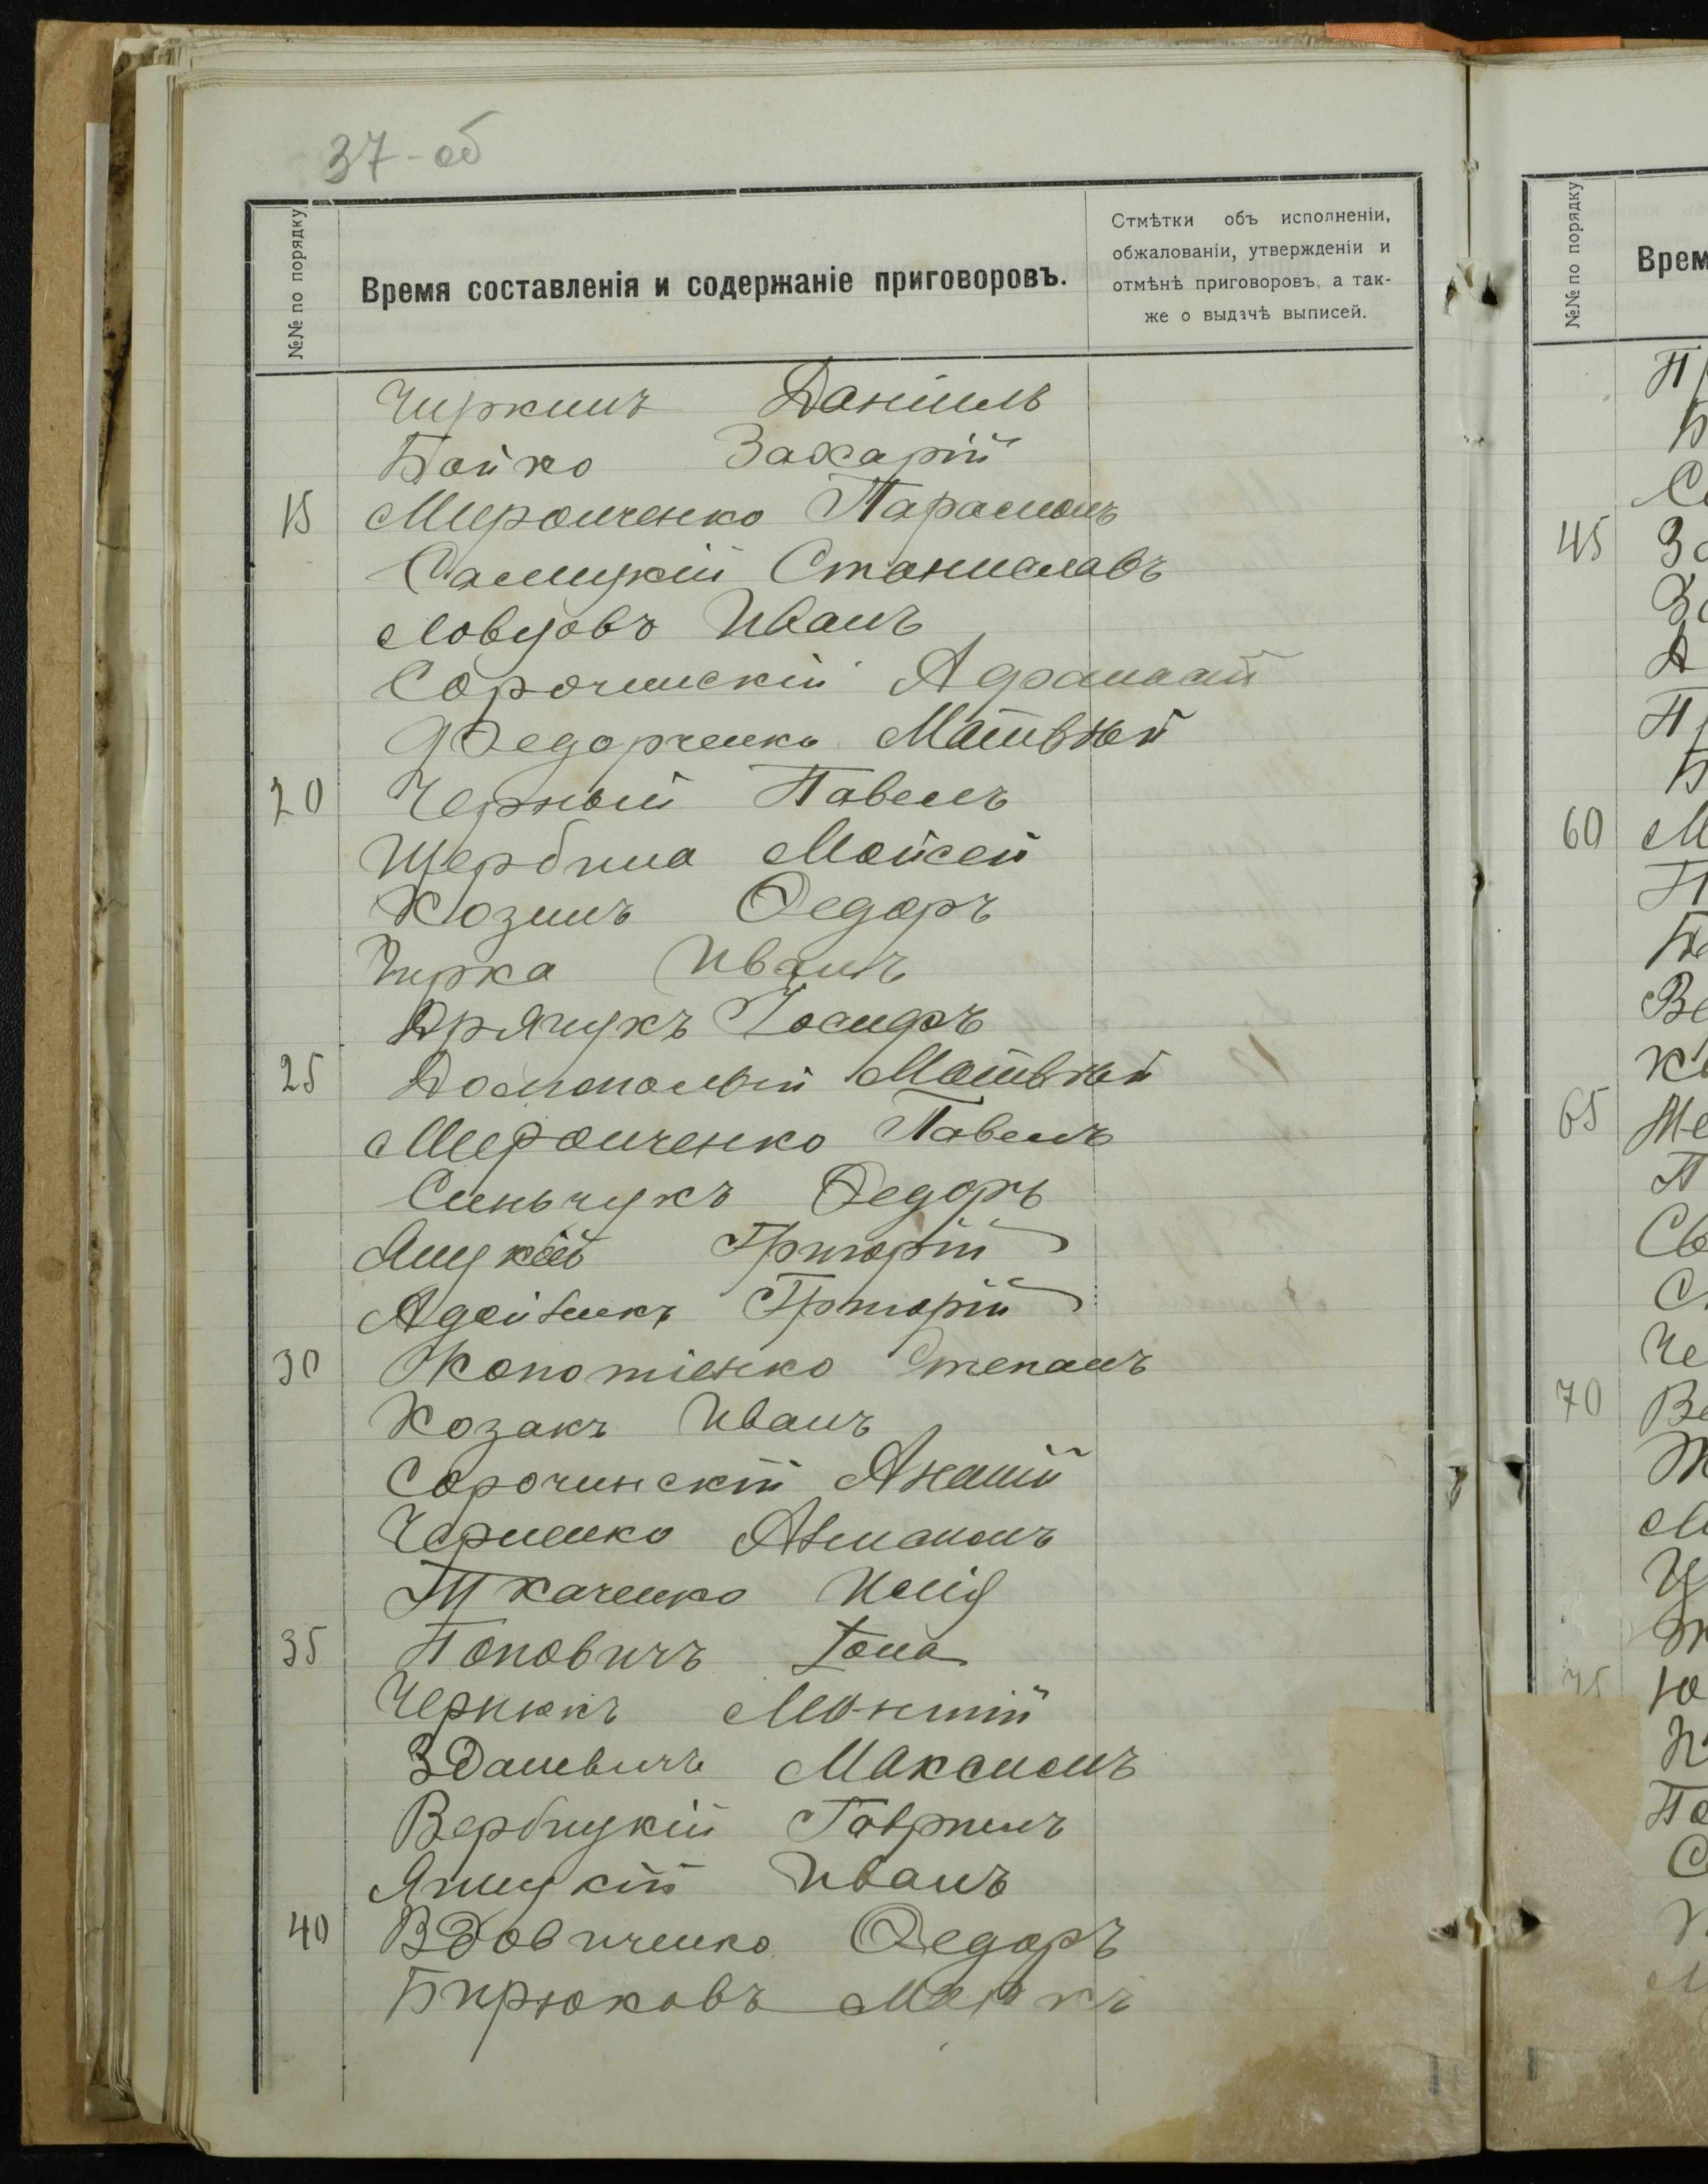 37-об
№№ по порядку
Время составленія и содержаніе приговоровъ.
Отмѣтки объ исполненіи,
обжалованіи, утвержденіи и
отмѣнѣ приговоровъ, а так-
же о выдачѣ выписей.
Чиркинъ Даніилъ
Бойко Захарій
15 Миронченко Парамонъ
Салицкій Станиславъ
Ловцовъ Иванъ
Сорочинскій Афанасій
Федорченко Матвѣй
20 Черный Павелъ
Щербина Мойсей
Козинъ Федоръ
Чирка Иванъ
Дрячукъ Іосифъ
25 Матвѣй
Миронченко Павелъ
Синьчукъ Федоръ
Яницкій Григорій
Григорій
30 Конотіенко Степанъ
Козакъ Иванъ
Сорочинскій Ананій
Черненко
Ткаченко Илія
35 Поповичъ Іона
Чернюкъ
Зданевичъ Максимъ
Вербицкій Гавріилъ
Яницкій Иванъ
40 Вдовиченко Федоръ
Бирюковъ Маркъ
№№ по порядку
Врем
45
60
65
70
75